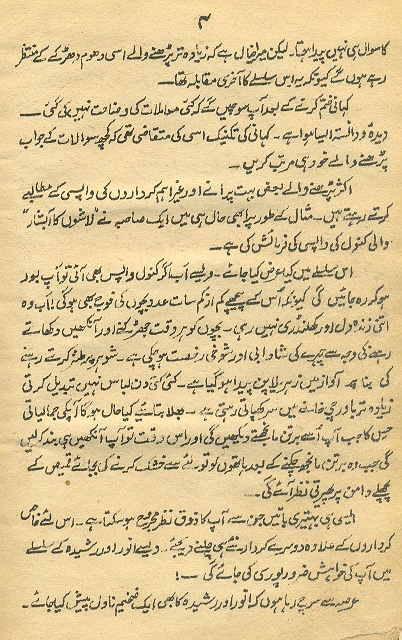 ۳
کا سوال ہی نہیں پیدا ہوتا۔ لیکن میرا خیال ہے کہ زیادہ تر پڑھنے والے اسی دھوم دھڑکے کے منتظر
رہے ہوں گے کیونکہ یہ اس سلسلے کا آخری مقابلہ تھا۔
کہانی ختم کرنے کے بعد آپ سوچیں گے کہ کئی معاملات کی وضاحت نہیں ہوئی گئی۔
دیدہ و دانستہ ایسا ہوا ہے۔ کہانی کی تکنیک اسی کی متقاضی تھی کہ کچھ سوالات کے جواب
پڑھنے والے خود ہی مرتب کریں۔
اکثر پڑھنے والے بعض بہت پرانے اور غیر اہم کرداروں کی واپسی کے مطالبے
کرتے رہتے ہیں۔ مثال کے طور پر ابھی حال ہی میں ایک صاحبہ نے "لاشوں کا آبشار"
والی کنول کی واپسی کی فرمائش کی ہے۔
اس سلسلے میں کیا عرض کیا جائے۔ ویسے اب اگر کنول واپس بھی آئی تو آپ بور
ہو کر رہ جائیں گی کیونکہ اس کے پیچھے کم از کم سات عدد بچوں کی فوج بھی ہو گی! اب وہ
اتنی زندہ دل اور کھلنڈری نہیں رہی۔ بچوں کو ہر وقت جھڑکنے اور آنکھیں دکھاتے
رہنے کی وجہ سے چہرے کی شادابی اور شوخی رخصت ہو چکی ہے۔ شوہر پر طنز کرتے رہنے
کی بناء پر آواز میں زہریلا پن پیدا ہو گیا ہے۔ کئی کئی دن لباس نہیں تبدیل کرتی
زیادہ تر باورچی خانے میں سر کھپاتی رہتی ہے۔ بھلا بتائیے کیا حال ہو گا آپ کی جمالیاتی
حس کا جب آپ اُسے برتن مانجھتے دیکھیں گی اور اس وقت تو آپ آنکھیں ہی بند کر لیں
گی جب وہ برتن مانجھ چکنے کے بعد ہاتھوں کو تولئے سے خشک کرنے کی بجائے قمیص کے
پچھلے دامن پر پھیرتی نظر آئے گی۔
ایسی ہی بہتیری باتیں جن سے آپ کا ذوقِ نظر مجروح ہو سکتا ہے۔ اس لئے خاص
کرداروں کے علاوہ دوسرے کردار نئے ہی چلنے دیجئے۔ ویسے انور اور رشیدہ کے سلسلے
میں آپ کی خواہش ضرور پوری کی جائے گی ۔۔!
عرصہ سے سوچ رہا ہوں کہ انور اور رشیدہ کا بھی ایک ضخیم ناول پیش کیا جائے۔